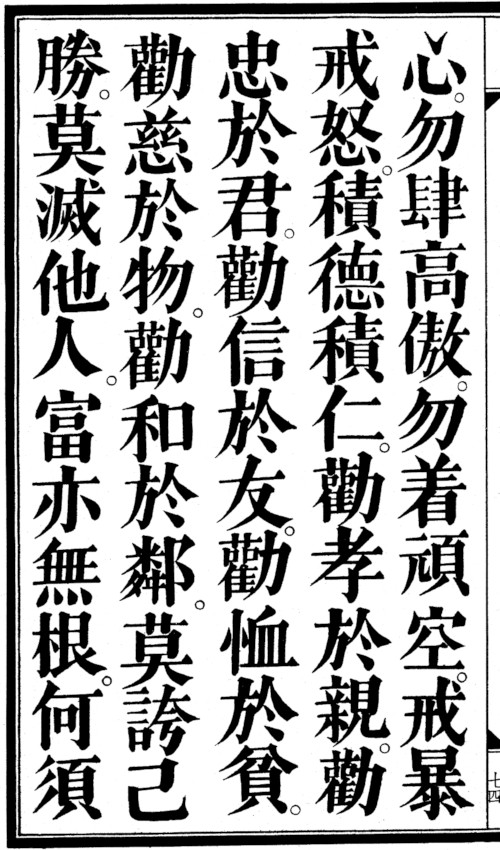 心。勿肆高傲。勿着頑空。戒暴
戒怒。積德積仁。勸孝於親。勸
忠於君。勸信於友。勸恤於貧。
勸慈於物。勸和於鄰。莫誇己
勝。莫滅他人。富亦無根。何須
七四